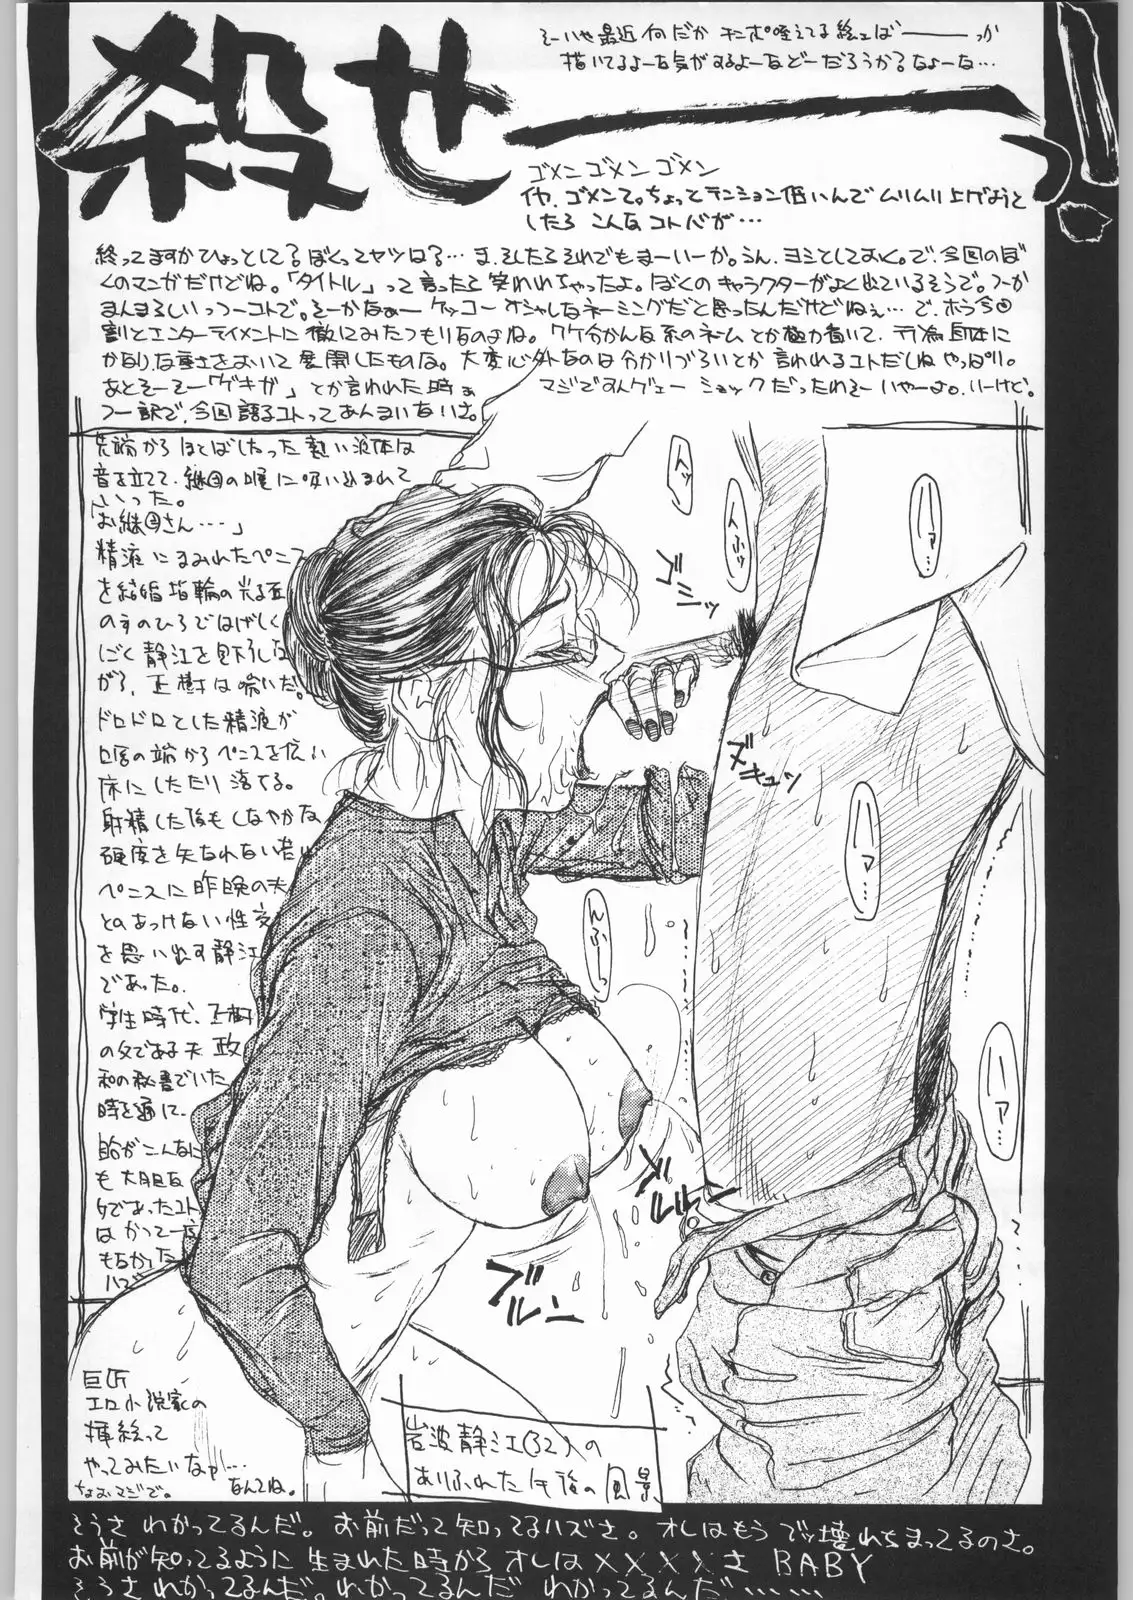 殺せーーっ!!
そーいや最近何だか チ○ポ咥えてる絵ェばーーーっか
描いてるよーな気がするよーなどーだろうか?なよーな…
ゴメン ゴメン ゴメン
イヤ、ゴメンて。ちょっとテンション低いんでムリムリ上げようと
したら こんなコトバが…
終ってますかひょっとして?ぼくってヤツは?…ま、そしたらそれでもまーいーか。うん、ヨシとしておく。で、今回のぼ
くのマンガだけどね。「タイトル」って言ったら笑われちゃったよ。ぼくのキャラクターがよく出ているそうで。つーか
まんまるしいっつーコトで。そーかなぁー ケッコーオシャレなネーミングだと思ったんだけどねぇ…で、ホラ今回
割とエンターテイメントに徹してみたつもりなのよね。ワケ分かんな系のネームとか極力省いて、行為自体に
かなりな重さをおいて展開したものな。大変心外なのは分かりづらいとか言われるコトだしね やっぱり。
あとそーそー「ゲキガ」とか言われた時ぁ マジですんゲェー ショックだったわそー いやーよ。いーけど。
つー訳で、今回語るコトってあんまいないさ。
先端からほとばしった熱い液体は
音を立てて、継母の喉に吸い込まれて
いった。
「お継母さん…‥」
精液にまみれたペニス
を結婚指輪の光る左
の手のひらではげしく
しごく静江を見下ろしな
がら、正樹は喘いだ。
ドロドロとした精液が
口唇の端からペニスを伝い
床にしたたり落てる。
射精した後もしなやかな
硬度を失なわない若い
ペニスに昨晩の夫
とのあっけない性交
を思い出す静江
であった。
学生時代、正樹
の父である夫 政
和の秘書でいた
時を通じ、
自分がこんなに
も大胆な
ケであったコト
はかつて一度
もなかった
ハズ
ンッ
んふッ
ハァ…
グニッ
ズキュッ
ハァ…
んふーっ
ハァ…
ブルルン
ブルン
巨匠
エロ小説家の
挿絵って
やってみたいなァ!…
ちなみマジで。 なんてね。
岩波静江(32)の
ありふれた午後の風景
そうさ わかってるんだ。お前だって知ってるハズさ。オレはもう ブッ壊れちまってるのさ。
お前が知ってるように 生まれた時から オレは××××さ BABY
そうさ わかってるんだ。わかってるんだ わかってるんだ……